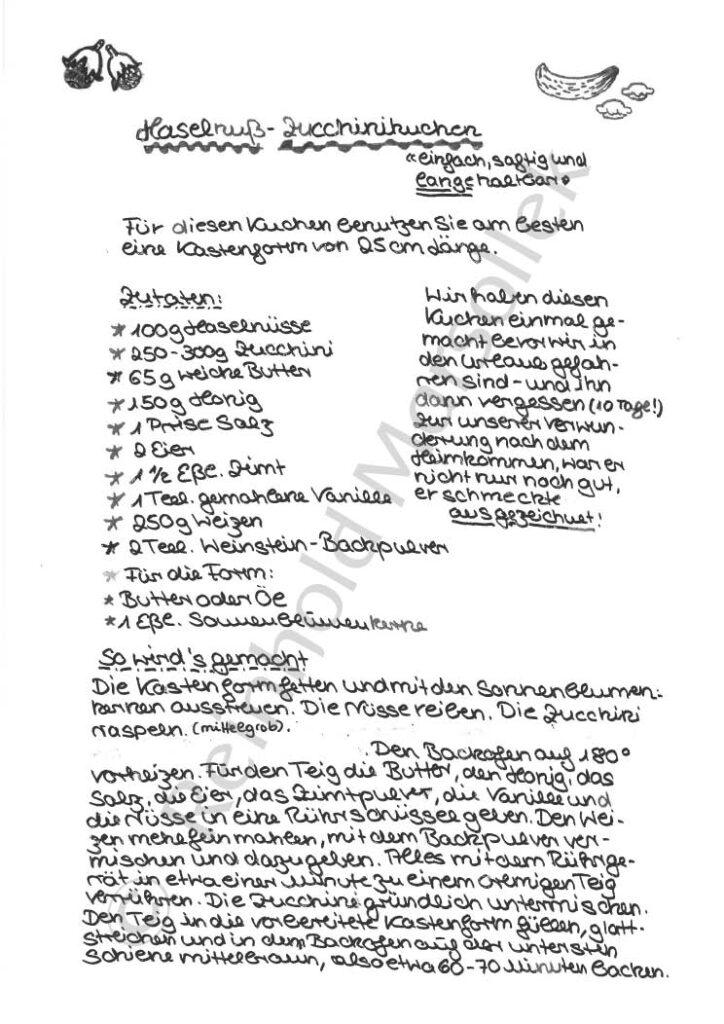 Haselnuß-Zucchinikuchen
"einfach, saftig und
lange haltbar"
Für diesen Kuchen benutzen Sie am besten
eine Kastenform von 25cm Länge.
Zutaten:
* 100g Haselnüsse
* 250-300g Zucchini
* 65g weiche Butter
* 150g Honig
* 1 Prise Salz
* 2 Eier
* 1 1/2 Eßl. Zimt
* 1 Teel. gemahlene Vanille
* 250g Weizen
* 2 Teel. Weinstein-Backpulver
* Für die Form:
* Butter oder Öl
* 1 Eßl. Sonnenblumenkerne
Wir haben diesen
Kuchen einmal ge-
macht bevor wir in
den Urlaub gefah-
ren sind - und ihn
dann vergessen (10 Tage!)
Zur unserer Verwun-
derung nach dem
Heimkommen, war er
nicht nur noch gut,
er schmeckte
ausgezeichnet!
So wird's gemacht
Die Kastenform fetten und mit den Sonnenblumen-
kernen ausstreuen. Die Nüsse reiben. Die Zucchini
raspeln. (mittelgrob).
Den Backofen auf 180°
vorheizen. Für den Teig die Butter, den Honig, das
Salz, die Eier, das Zimtpulver, die Vanille und
die Nüsse in eine Rührschüssel geben. Den Wei-
zen mehlfein mahlen, mit dem Backpulver ver-
mischen und dazugeben. Alles mit dem Rührge-
rät in etwa einer Minute zu einem cremigen Teig
verrühren. Die Zucchini gründlich untermischen.
Den Teig in die vorbereitete Kastenform füllen, glatt-
streichen und in dem Backofen auf der untersten
Schiene mittelbraun, also etwa 60-70 Minuten backen.
© Reinhold Marsollek